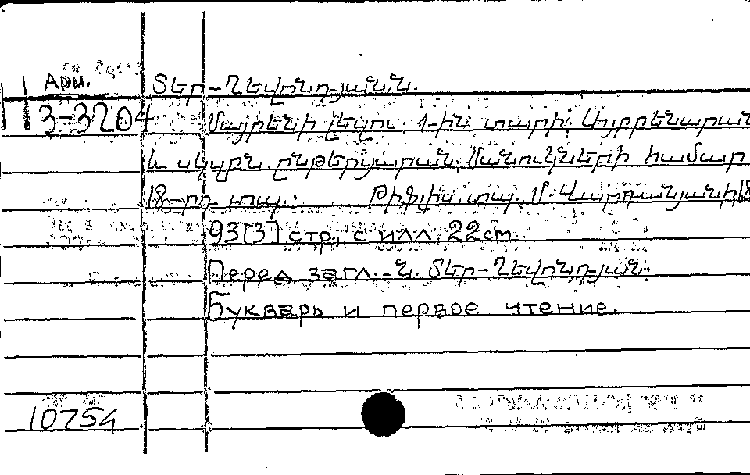 Арм. Տեր-Ղեվոնդյան Ն.
3-3204 Մայրենի լեզու. 1-ին տարի. Այբբենարան
և սկզբն. ընթերցարան. Մանուկների համար
18-րդ տպ. Թիֆլիս. տպ. Մ. Վարդանյանի,
93[3] стр., с илл. 22 см.
Перед загл. -Ն. Տեր-Ղեվոնդյան.
Букварь и первое чтение.
10754